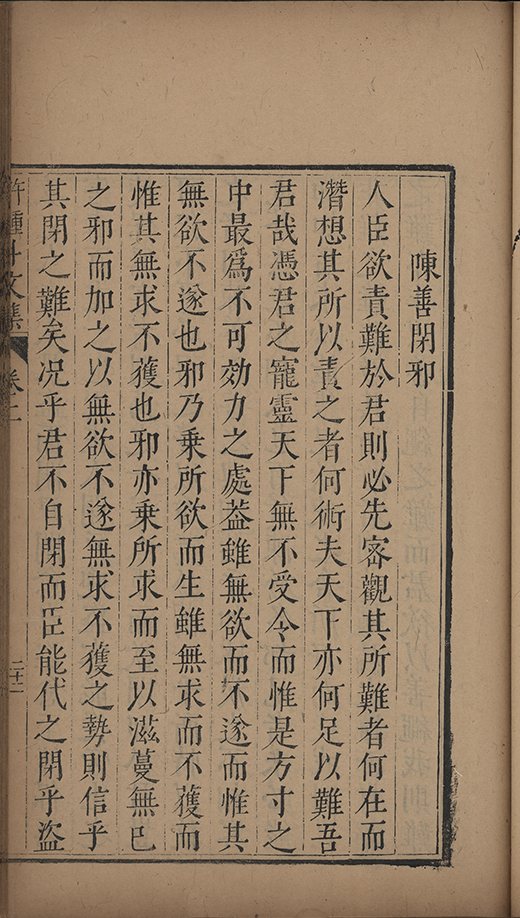 陳善閉邪
人臣欲責難於君則必先宻觀其所難者何在而
潛想其所以責之者何術夫天下亦何足以難吾
君哉憑君之寵靈天下無不受令而惟是方寸之
中最爲不可効力之處葢雖無欲而不遂而惟其
無欲不遂也邪乃乗所欲而生雖無求而不獲而
惟其無求不獲也邪亦乗所求而至以滋蔓無已
之邪而加之以無欲不遂無求不獲之勢則信乎
其閉之難矣况乎君不自閉而臣能代之閉乎盜
許鍾斗文集
卷二
二十二